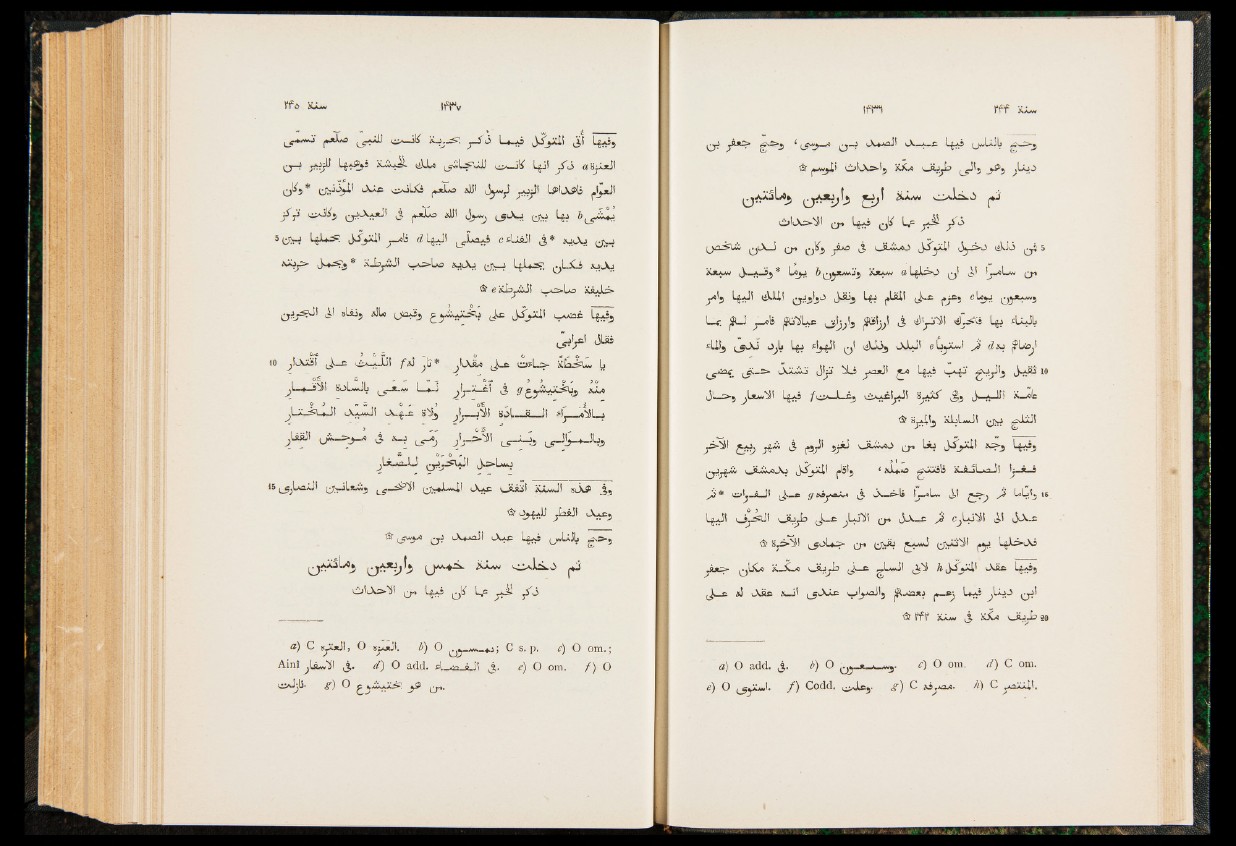 سنة ٢۴۴ ١۴٣٦
وحجّ بالناس فيها عبد الصمد بن موسى، وحجّ جعفر بن
دينار وهو والى طريق مكّة واحداث الموسم ☆
ثم دخلت سنة اربع واربعين ومائتين
ذكر الخبر عما كان فيها من الاحداث
5 فمن ذلك دخول المتوكل دمشق فى صفر وكان من لدن شخص
من سامرّا الى ان دخلها a سبعة وتسعون b يوما *وقيل سبعة
وسبعون يوما c وعزم على المقام بها ونقل دواوين الملك اليها وامر
بالبناء بها فتحرك الاتراك فى ارزاقهم وارزاق عيالاتهم فامر لهم بما
ارضاهم به d ثم استوبأ e البلد وذلك ان الهواء بها بارد نَدىّ والماء
10 ثقيل والريح تهبّ فيها مع العصر فلا تزال تشتدّ حتى يمضى
عامّة الليل وهى كثيرة البراغيث وغلت f فيها الاسعار وحال
الثلج بين السابلة والميرة ☆
وفيها وجّه المتوكل بغا من دمشق لغزو الروم فى شهر ربيع الآخر
فغزا الصائفة فافتتح صَمُلَّه، واقام المتوكل بدمشق شهرين
15 وايّاما ثم رجع الى سامرّا فاخذ فى منصرفه g على الفرات *ثم
عدل الى الانبار c ثم عدل من الانبار على طريق الحُرْف اليها
فدخلها يوم الاثنين لسبع بقين من جمادى الآخرة ☆
وفيها عقد المتوكل h لابى الساج على طريق مكّة مكان جعفر
ابن دينار فيما زعم بعضهم والصواب عندى انه عقد له على
20 طريق مكّة فى سنة ٢۴٢ ☆
a) O add. فى. b) O وسعون. c) O om. d) C om.
e) O استوى. f) Codd. وعلت. g) C مصرفه. h) C المنتصر.
١۴٣٧ سنة ٢۴٥
وفيها أتى المتوكل فيما ذكر بحربة كانت للنبى صلّعم تسمّى
العنزة a ذكر انها كانت للنجاشى ملك الحبشة فوهبها للزبير بن
العوّام فاهداها الزبير لرسول الله صلّعم فكانت عند المؤذّنين *وكان
يُمْشَى b بها بين يدى رسول الله صلّعم فى العيدين وكانت تركز
5 بين يديه *فى الفناء c فيصلّى اليها d فامر المتوكل بحملها بين
يديه فكان يحملها بين يديه صاحب الشرطة *ويحمل حربته
خليفة صاحب الشرطة e ☆
وفيها غضب المتوكل على بَخْتيشُوع وقبض ماله ونفاه الى البحرين
فقال اعرابىّ
10 يا سَخْطَةً جاءَتْ على مقْدارِ *ثارَ لهُ f اللَّيْثُ على آقْتِدارِ
مِنْهُ وبَخْتيشُوع g فى آغْتِرارِ لَمّا سَعَى بالسّادة الأَقْمارِ
بالأُمَراءِ القادَةِ الأَبْرارِ وُلاةِ عَهْدِ السَّيِّدِ المُخْتارِ
وبالمَوالِى وبَنِى الأَحْرارِ رَمَى به فى مُوحِشِ القِفارِ
بساحِلِ البَحْرَيْنِ للصَّغارِ
15 وفى هذه السنة اتّفق عيد المسلمين الاضحى وشعانين النصارى
وعيد الفطر لليهود ☆
وحجّ بالناس فيها عبد الصمد بن موسى ☆
ثم دخلت سنة خمس واربعين ومائتين
ذكر الخبر عما كان فيها من الاحداث
a) C العتره, O العنزه. b) O ; C s. p. c) O om.;
Ainî فى الاسفار. d) O add. فى الفضاء. e) O om. f) O
نازلت. g) O من هو اختيشوع.